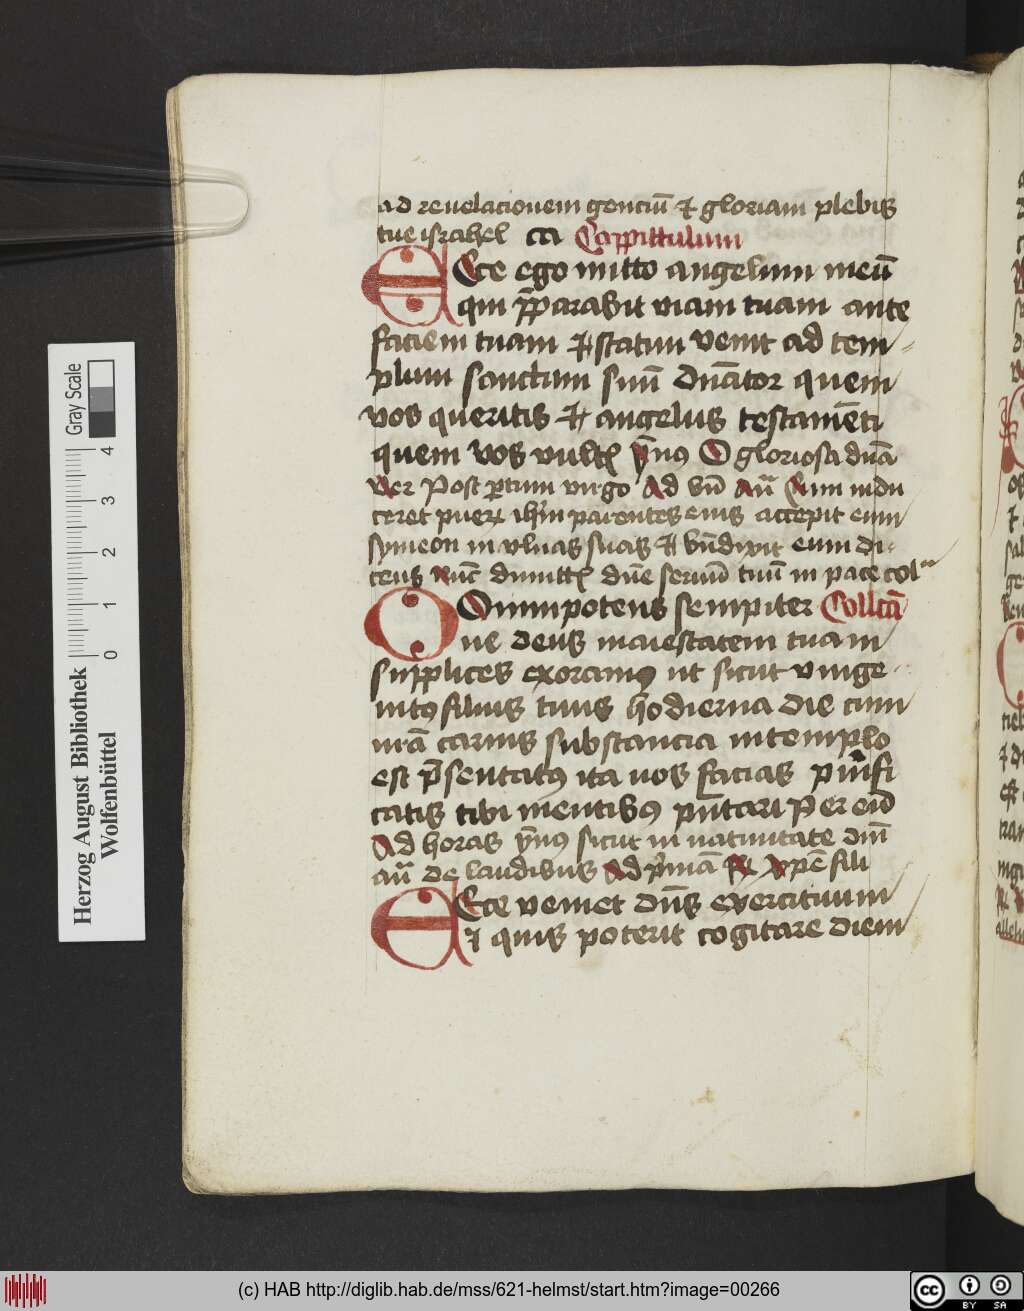 ad reuelacionem genciū et gloriam plebis
tue israhel Cappittulum
Ecce ego mitto angelum meū
qui p̄parabit viam tuam ante
faciem tuam et statim venit ad tem
plum sanctum suū dn̄ator quem
vos queritis et angelus testamēti
quem vos vultꝭ ȳnꝰ O gloriosa dn̄a
ver Post partum virgo Ad bn̄ an̄ Cum indu
ceret pueꝝ ihm̄ parentes eius accepit eum
symeon in vlnas suas et bn̄dixit eum di
cens nūc dimittꝭ dn̄e seruū tuū in pace col
Omnipotens sempiter Collcā
ne deus maiestatem tuam
supplices exoramꝰ ut sicut vnige
nitꝰ filius tuus hodierna die cum
nr̄a carnis substancia in templo
est p̄sentatꝰ ita nos facias purifi
catis tibi mentibꝰ pn̄tari Per eūd
Ad horas ȳnꝰ sicut in natiuitate dnī
an̄ de laudibus Ad p̄mā ℟ xp̄e fili
Ecce veniet dn̄s exercituum
et quis poterit cogitare diem
Herzog August Bibliothek
Wolfenbüttel
0 1 2 3 4
Gray Scale
(c) HAB http://diglib.hab.de/mss/621-helmst/start.htm?image=00266
cc BY SA